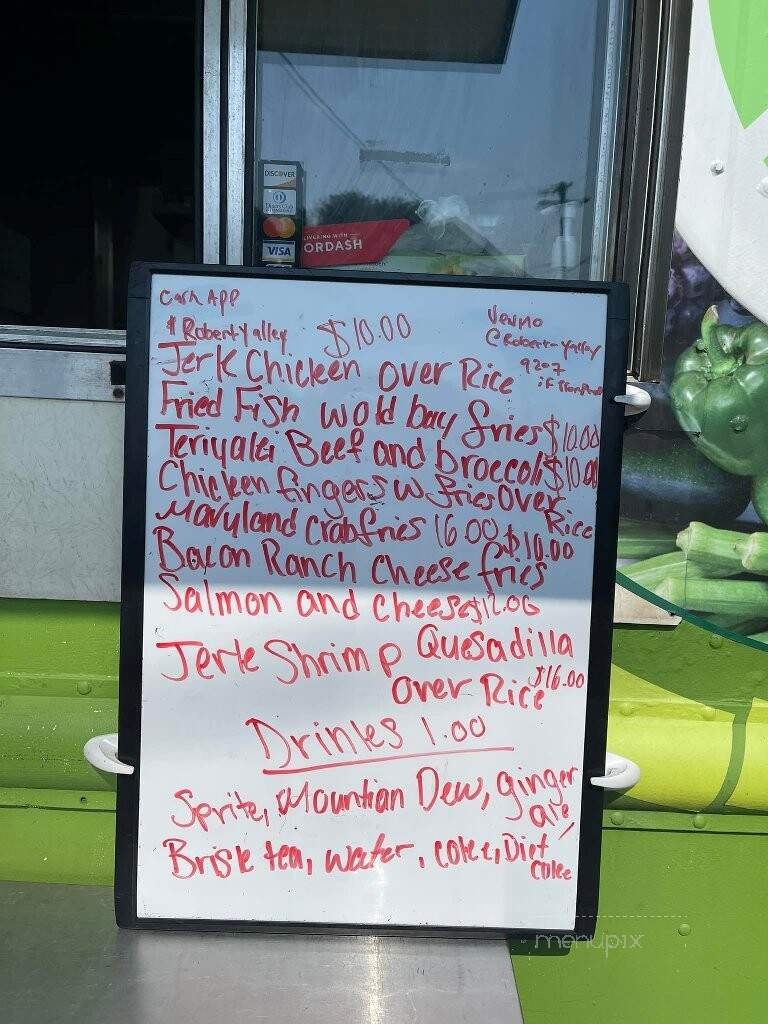 DISCOVER
Diners Club
VISA
ORDASH
Cash APP
$ RobertYalley $10.00
Venmo
@Robert-Yalley
9207
Jerk Chicken over Rice
Fried Fish w old bay fries $10.00
Teriyaki Beef and broccoli $10.00
Chicken fingers w fries over Rice
Maryland Crab fries 16.00 $10.00
Bacon Ranch Cheese fries
Salmon and cheese $12.00
Quesadilla
Jerk Shrimp
over Rice $16.00
Drinks 1.00
Sprite, Mountian Dew, ginger
ale,
Brisk tea, water, coke, Diet
Coke
menupix